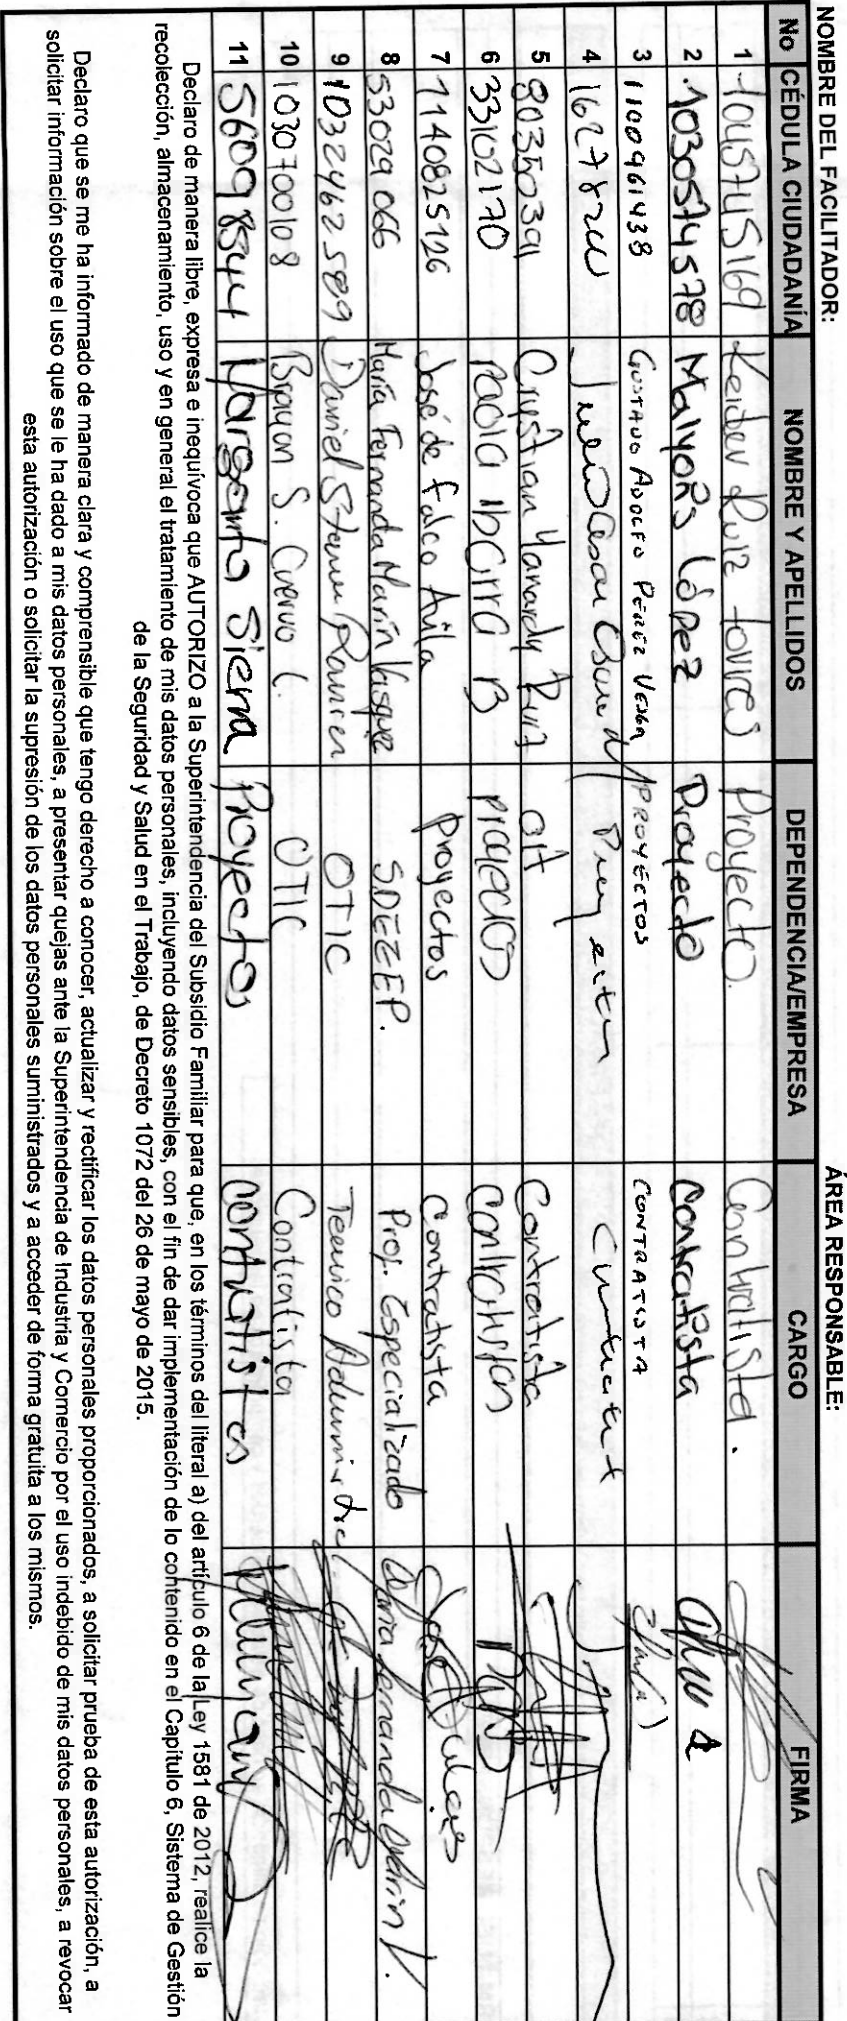 NOMBRE DEL FACILITADOR: ÁREA RESPONSABLE:
No CÉDULA CIUDADANÍA NOMBRE Y APELLIDOS DEPENDENCIA/EMPRESA CARGO FIRMA
1 Keider Ruiz Proyecto. Contratista.
2 1030574578 Malyoris López Proyecto Contratista
3 1100961438 GUSTAVO ADOLFO PEREZ PROYECTOS CONTRATISTA
4 Julio Cesar
5 80350391 Crystian Yanardy Ruiz Contratista
6 33102170 Paola Ibarra B proyectos Contratistas
7 1140825126 José de Falco Avila Proyectos Contratista
8 53029066 María Fernanda Marín Vasquez SDEZEP. Prof. Especializado María Fernanda Marín V.
9 1032462589 Daniel Ramirez OTIC Tecnico
10 1030700108 Brayan S. Cuervo C. OTIC Contratista
11 Margarita Sierra Proyectos Contratistas
Declaro de manera libre, expresa e inequívoca que AUTORIZO a la Superintendencia del Subsidio Familiar para que, en los términos del literal a) del artículo 6 de la Ley 1581 de 2012, realice la
recolección, almacenamiento, uso y en general el tratamiento de mis datos personales, incluyendo datos sensibles, con el fin de dar implementación de lo contenido en el Capítulo 6, Sistema de Gestión
de la Seguridad y Salud en el Trabajo, de Decreto 1072 del 26 de mayo de 2015.
Declaro que se me ha informado de manera clara y comprensible que tengo derecho a conocer, actualizar y rectificar los datos personales proporcionados, a solicitar prueba de esta autorización, a
solicitar información sobre el uso que se le ha dado a mis datos personales, a presentar quejas ante la Superintendencia de Industria y Comercio por el uso indebido de mis datos personales, a revocar
esta autorización o solicitar la supresión de los datos personales suministrados y a acceder de forma gratuita a los mismos.